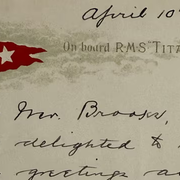 April 10
On board R.M.S "TITA
Mr. Brooks,
delighted to
greetings